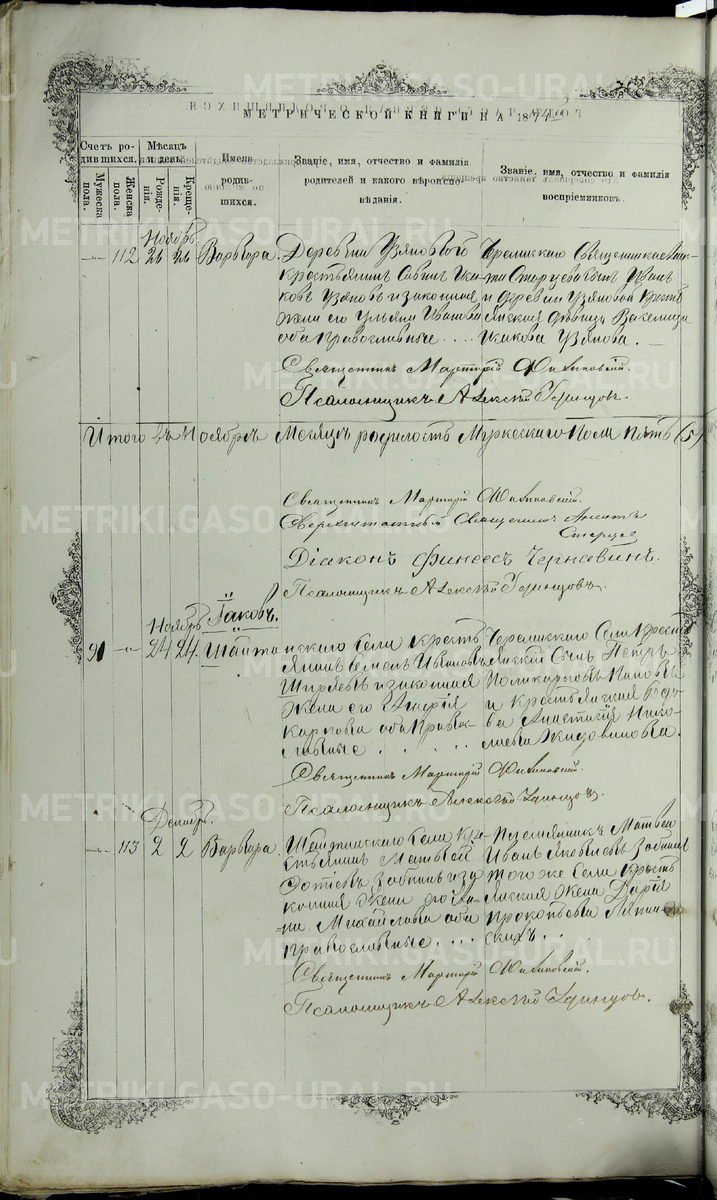 МЕТРИЧЕСКОЙ КНИГИ НА 1874 год
Счетъ родившихся.
Мужеска пола.
Женска пола.
Мѣсяцъ и день.
Рожденія.
Крещенія.
Имена родившихся.
Званіе, имя, отчество и фамилія родителей и какого вѣроисповѣданія.
Званіе, имя, отчество и фамилія воспріемниковъ.
Ноябрь
112 26 26 Варвара.
Деревни Узяновой
крестьянинъ Савинъ
ковъ Узяновъ и законная
жена его Ульяна Иванова
оба православные....
Черемисскаго Священника
Старцева сынъ Иванъ
и деревни Узяновой крестьянская девица
Узянова.
Священникъ Мартирій
Псаломщикъ Алексѣй Удинцовъ.
Итого въ Ноябрѣ месяцѣ родилось Мужескаго пола пять (5)
Священникъ Мартирій
Сверхштатный Священникъ
Старцев
Діаконъ Финеесъ Чернавинъ.
Псаломщикъ Алексѣй Удинцовъ.
Ноябрь
91 24 24
Іаковъ.
Шайтанскаго села крестьянинъ Семенъ Ивановъ
Ширяевъ и законная
жена его
Карпова оба православные
Черемисскаго Села крестьянскій сынъ Петръ
Поликарповъ Пановъ
и крестьянская вдова Анастасія Николаева
Священникъ Мартирій
Псаломщикъ Алексѣй Удинцовъ.
Декабрь.
113 2 2 Варвара.
Шайтанскаго села крестьянинъ Матвей
Зобнинъ и законная жена его
Михайлова оба
православные....
Племянникъ Матвея
Иванъ Яковлевъ Зобнинъ
того же села крестьянская жена Дарія
Прокопьева
Священникъ Мартирій
Псаломщикъ Алексѣй Удинцовъ.
METRIKI.GASO-URAL.RU